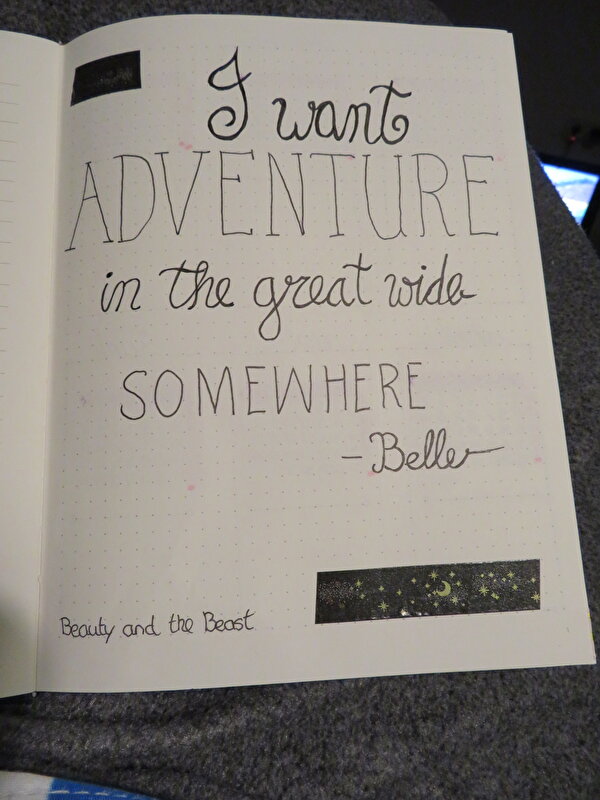 I want
ADVENTURE
in the great wide
SOMEWHERE
- Belle
Beauty and the Beast